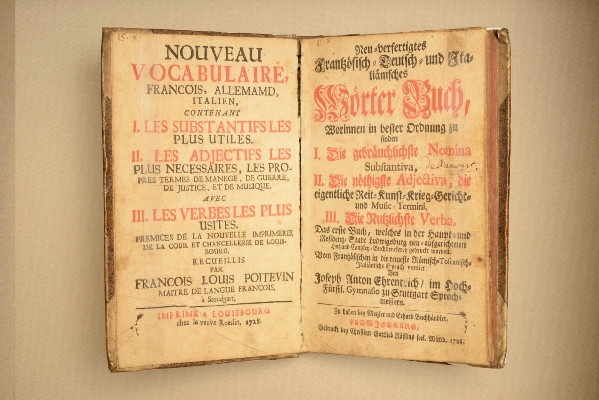 NOUVEAU
VOCABULAIRE,
FRANCOIS, ALLEMAMD,
ITALIEN,
CONTENANT
I. LES SUBSTANTIFS LES
PLUS UTILES.
II. LES ADJECTIFS LES
PLUS NECESSAIRES, LES PRO-
PRES TERMES DE MANEGE, DE GUERRE,
DE JUSTICE, ET DE MUSIQUE.
AVEC
III. LES VERBES LES PLUS
USITES.
PREMICES DE LA NOUVELLE IMPRIMERIE
DE LA COUR ET CHANCELLERIE DE LOUIS-
BOURG.
RECUEILLIS
PAR
FRANCOIS LOUIS POITEVIN
MAITRE DE LANGUE FRANCOIS,
à Stoutgart.
IMPRIME A LOUISBOURG
chez la veuve Roeslin, 1728.
Neu-verfertigtes
Frantzösisch-Teutsch-und Ita-
liänisches
Wörter Buch,
Worinnen in bester Ordnung zu
finden
I. Die gebräuchlichste Nomina
Substantiva,
II. Die nöthigste Adjectiva, die
eigentliche Reit-Kunst-Krieg-Gericht-
und Music-Termini.
III. Die Nutzlichste Verba.
Das erste Buch, welches in der Haupt-und
Residentz-Stadt Ludwigsburg neu-aufgerichteten
Hof-und Cantzley-Buchdruckerey gedruckt worden.
Vom Frantzösischen in die reineste Römisch-Toscanisch-
Italiänische Sprach versetzt
Von
Joseph Anton Ehrenreich, im Hoch-
Fürstl. Gymnasio zu Stuttgart Sprach-
meistern.
Zu haben bey Metzler und Erhard Buchhändler.
Gedruckt bey Christian Gottlieb Rößlins seel. Wittib. 1728.